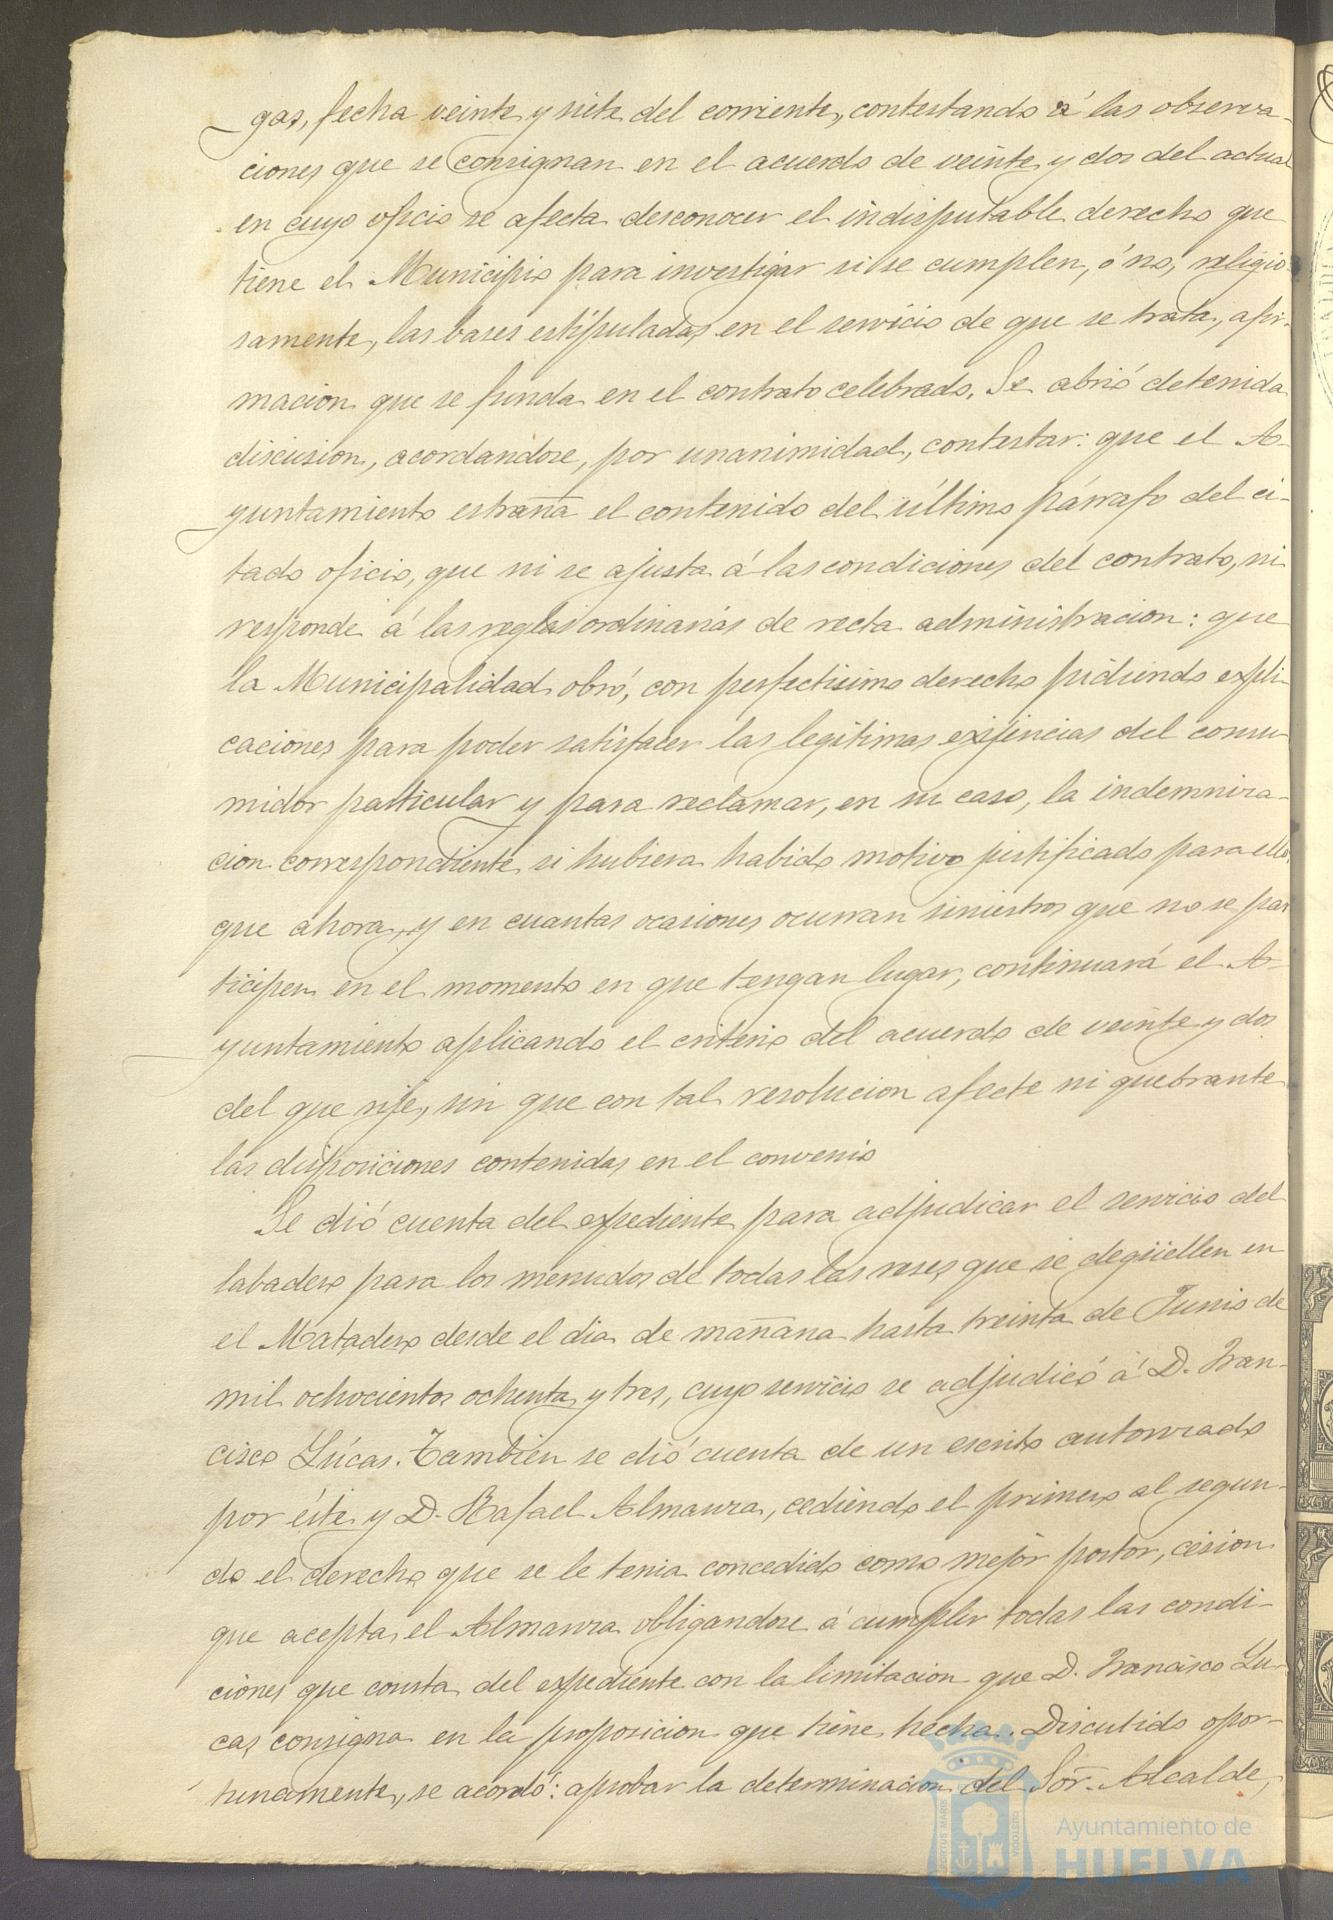 gas, fecha veinte y siete del corriente, contestando á las observa-
ciones que se consignan en el acuerdo de veinte y dos del actual
en cuyo oficio se afecta desconocer el indisputable derecho que
tiene el Municipio para investigar si se cumplen, ó no, religio-
samente, las bases estipuladas en el servicio de que se trata, afir-
macion que se funda en el contrato celebrado. Se abrió detenida
discusion, acordandose, por unanimidad, contestar: que el A-
yuntamiento estraña el contenido del último párrafo del ci-
tado oficio, que ni se ajusta á las condiciones del contrato, ni
responde á las reglas ordinarias de recta administracion: que
la Municipalidad obró, con perfectisimo derecho pidiendo expli-
caciones para poder satisfacer las legítimas exijencias del consu-
midor particular y para reclamar, en su caso, la indemniza-
cion correspondiente si hubiera habido motivo justificado para ello,
que ahora, y en cuantas ocasiones ocurran siniestros que no se par
ticipen en el momento en que tengan lugar, continuará el A-
yuntamiento aplicando el criterio del acuerdo de veinte y dos
del que rije, sin que con tal resolucion afecte ni quebrante
las disposiciones contenidas en el convenio
Se dió cuenta del expediente para adjudicar el servicio del
labadero para los menudos de todas las reses que se degüellen en
el Matadero desde el dia de mañana hasta treinta de Junio de
mil ochocientos ochenta y tres, cuyo servicio se adjudicó á D. Fran-
cisco Lúcas. Tambien se dió cuenta de un escrito autorizado
por éste y D. Rafael Almanza, cediendo el primero al segun-
do el derecho que se le tenia concedido como mejor postor, cesion
que acepta el Almanza obligandose á cumplir todas las condi-
ciones que consta del expediente con la limitacion que D. Francisco Lu-
cas consigna en la proposicion que tiene hecha. Discutido opor-
tunamente, se acordó: aprobar la determinacion del Sor. Alcalde,
PORTUS MARIS CUSTODIA
Ayuntamiento de
HUELVA